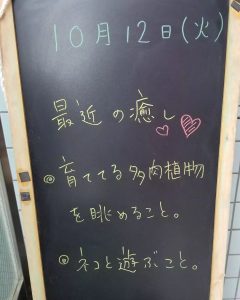 10月12日(火)
最近の癒し
◎育ててる多肉植物
を眺めること。
◎ネコと遊ぶこと。